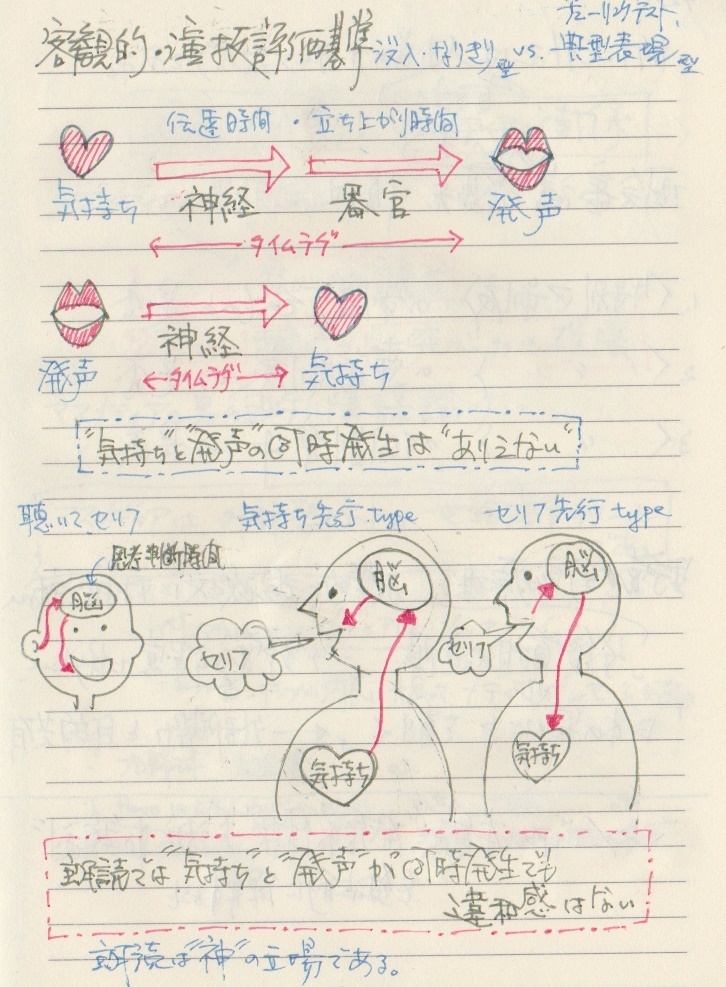 チューリングテスト、
客観的・演技評価基準 没入・なりきり型 vs. 典型表現型
伝達時間・立ち上がり時間
気持ち 神経 器官 発声
タイムラグ
発声 神経 気持ち
タイムラグ
"気持ち"と"発声"の同時発生は"ありえない"
聴いて、セリフ 気持ち先行type セリフ先行type
思考判断時間
脳 脳 脳
セリフ セリフ
気持ち 気持ち
朗読では"気持ち"と"発声"が同時発生でも
違和感はない
朗読は"神"の立場である。